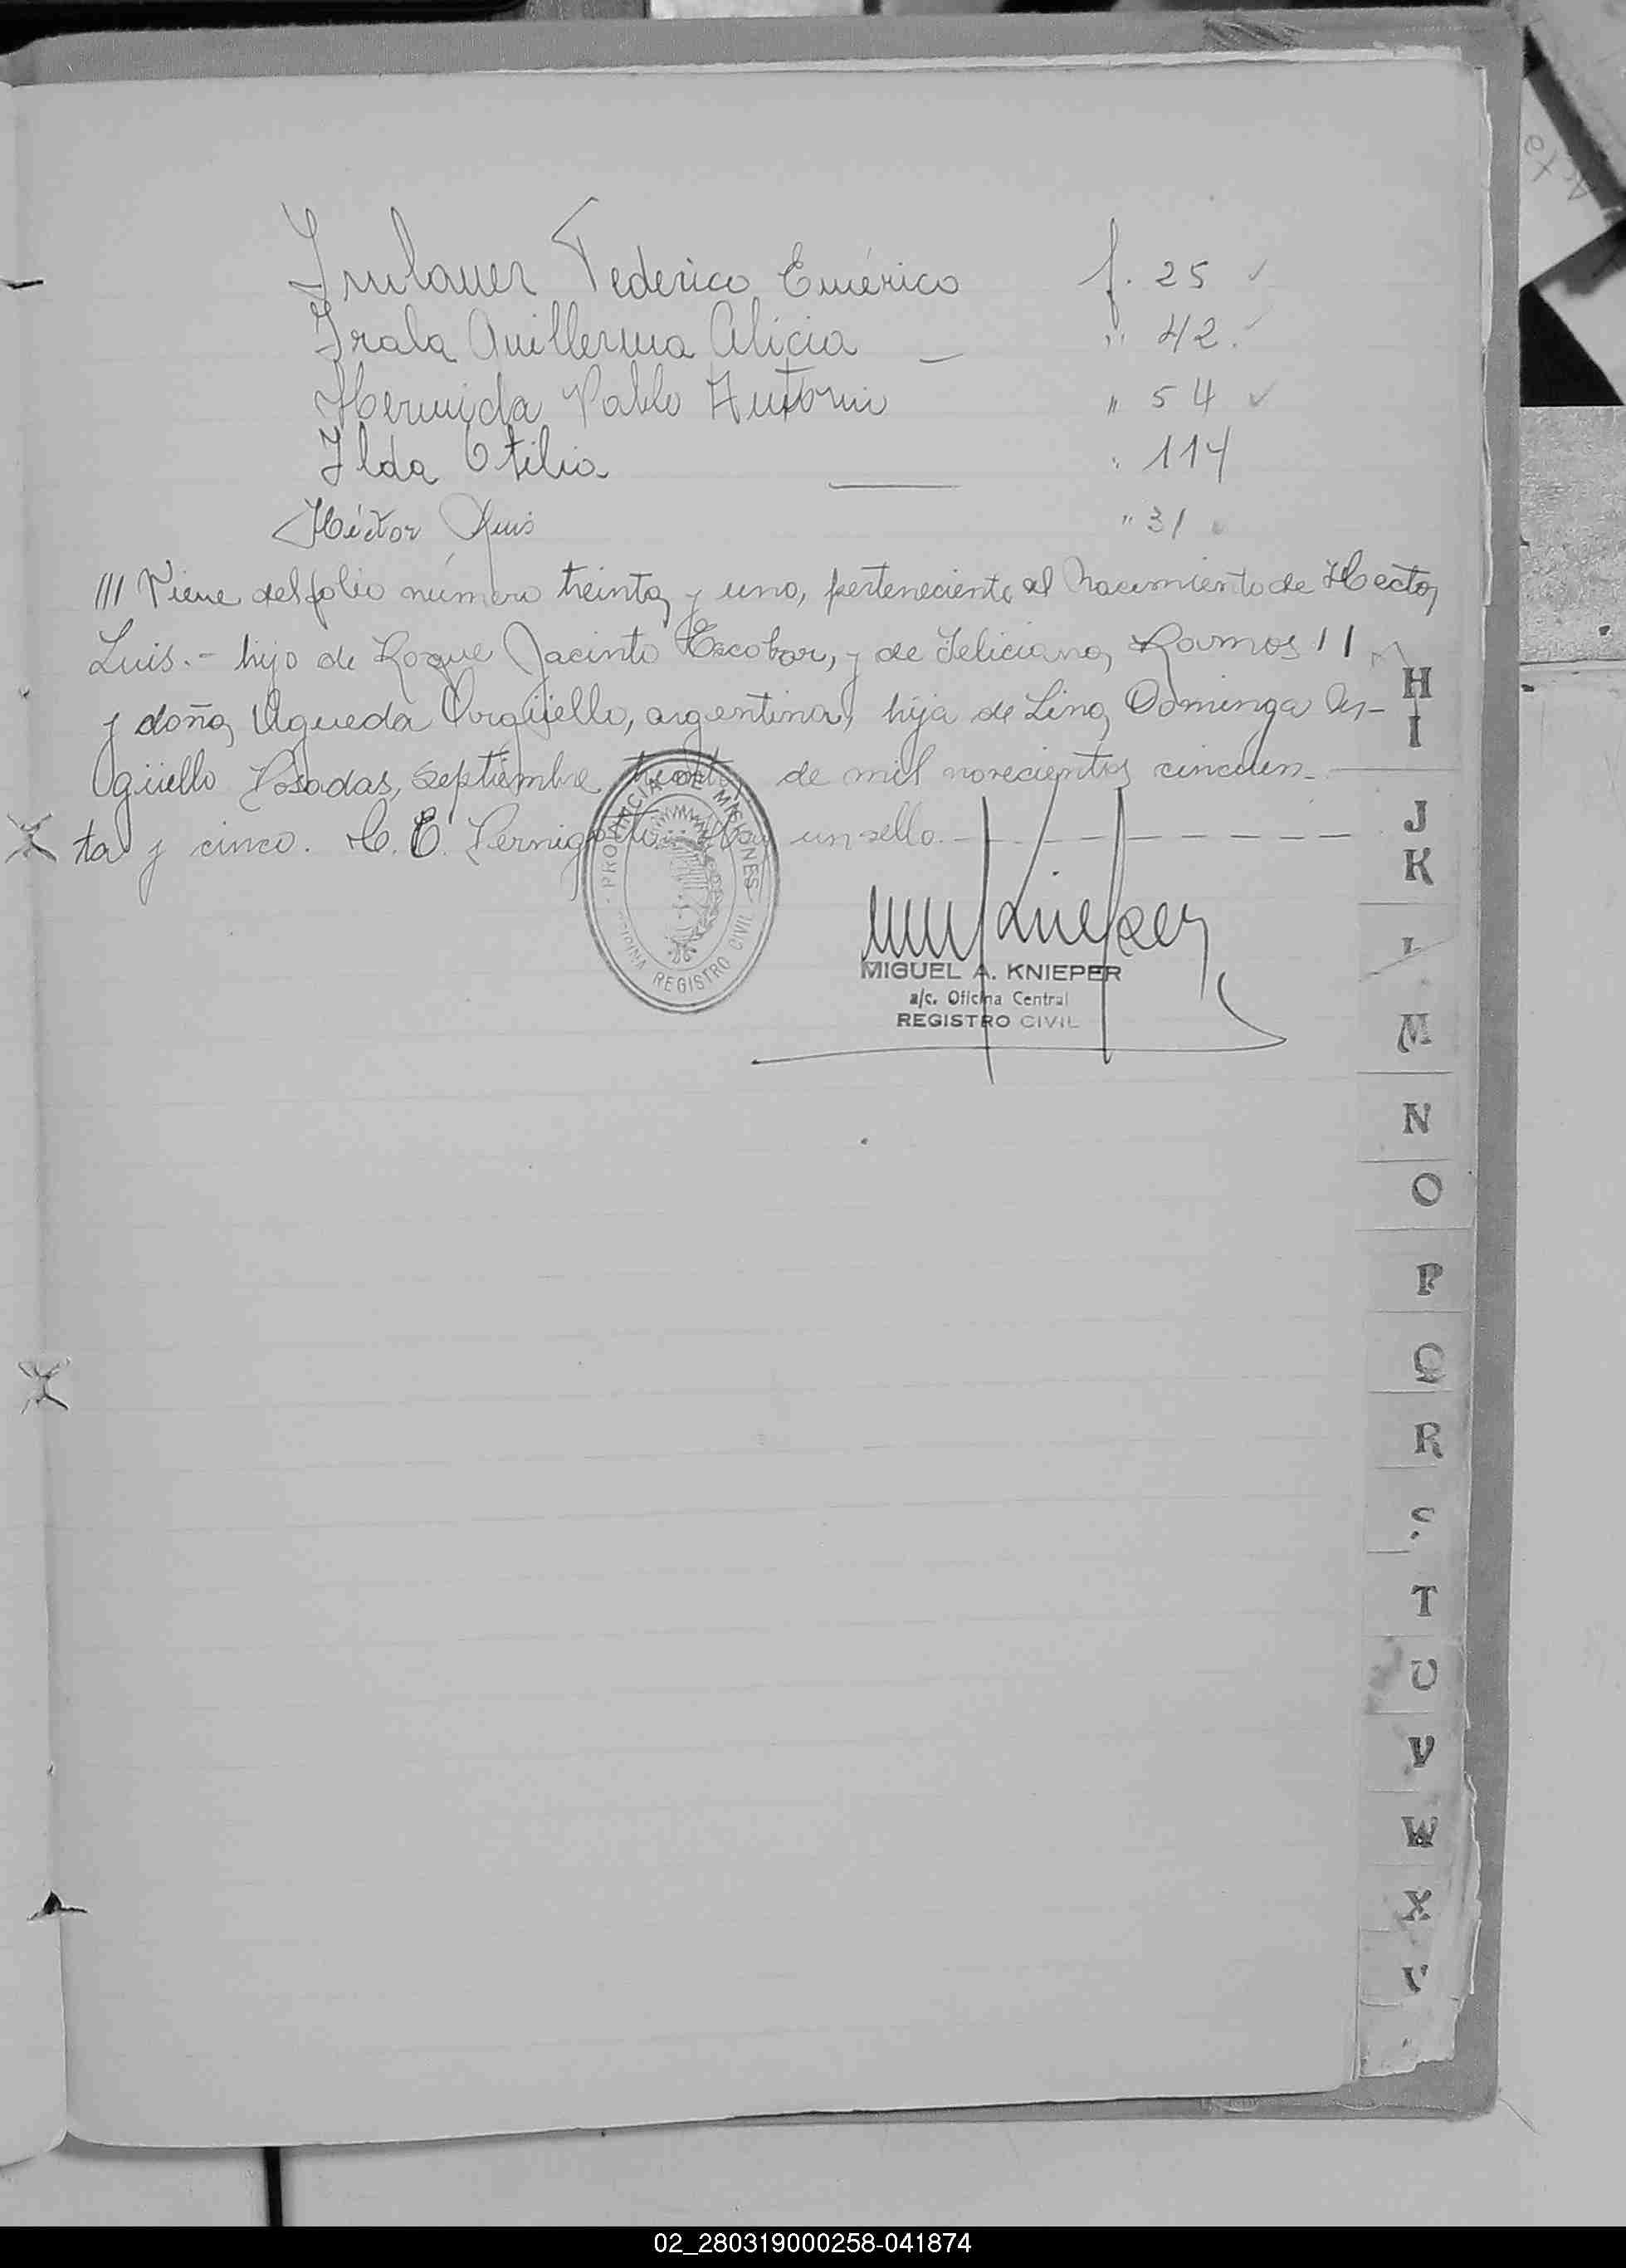 Federico Emérico f. 25
Irala Guillerma Alicia — " 42.
Hermida Pablo Antonio " 54
Ilda Otilia — " 114
Héctor Luis " 31
/// Viene del folio número treinta y uno, perteneciente al Nacimiento de Hector
Luis.- hijo de Roque Jacinto Escobar, y de Feliciana Ramos //
y doña Agueda Argüello, argentina, hija de Lina Dominga Ar-
güello Posadas, septiembre treinta de mil novecientos cincuen-
ta y cinco. Hay un sello. — — — — — — —
PROVINCIA DE MISIONES
OFICINA REGISTRO CIVIL
MIGUEL A. KNIEPER
a/c. Oficina Central
REGISTRO CIVIL
H
I
J
K
L
M
N
O
P
Q
R
S
T
U
V
W
X
02_280319000258-041874